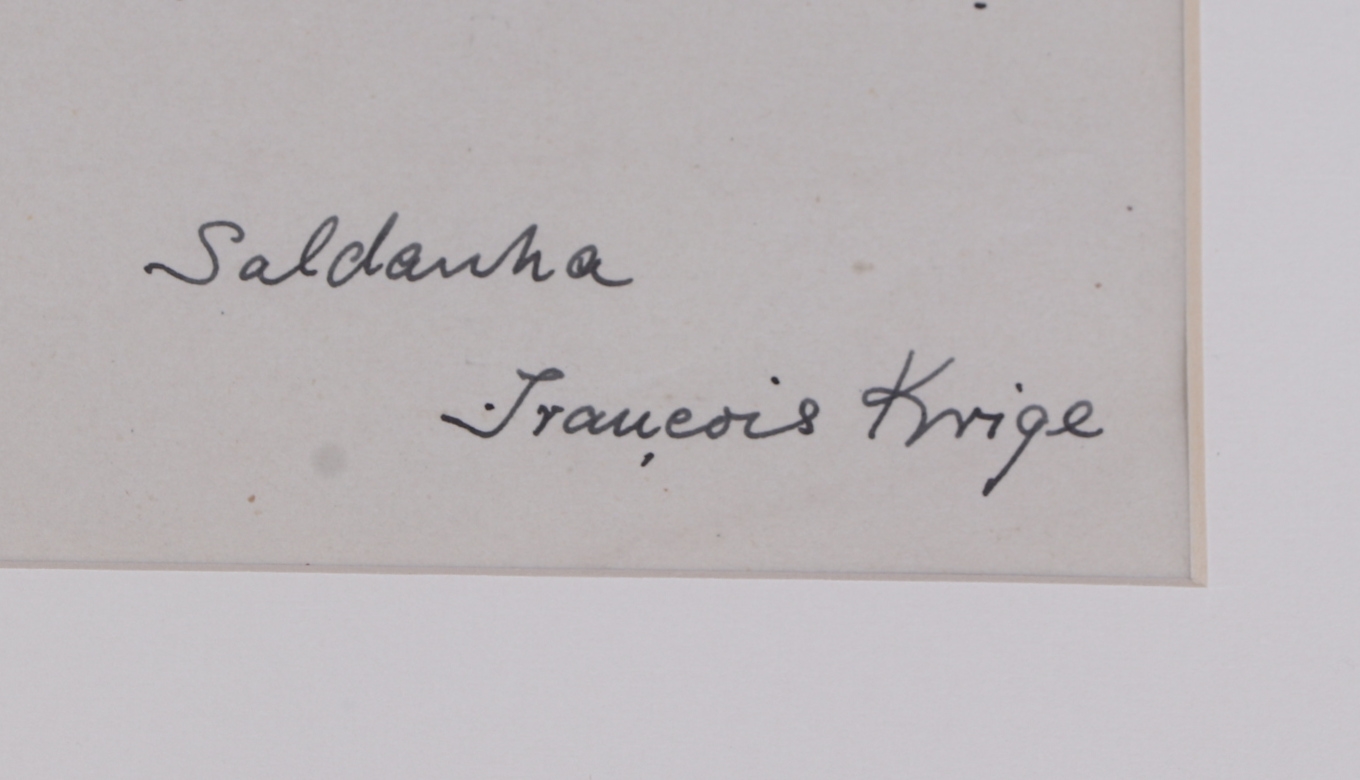 Saldanha
François Krige